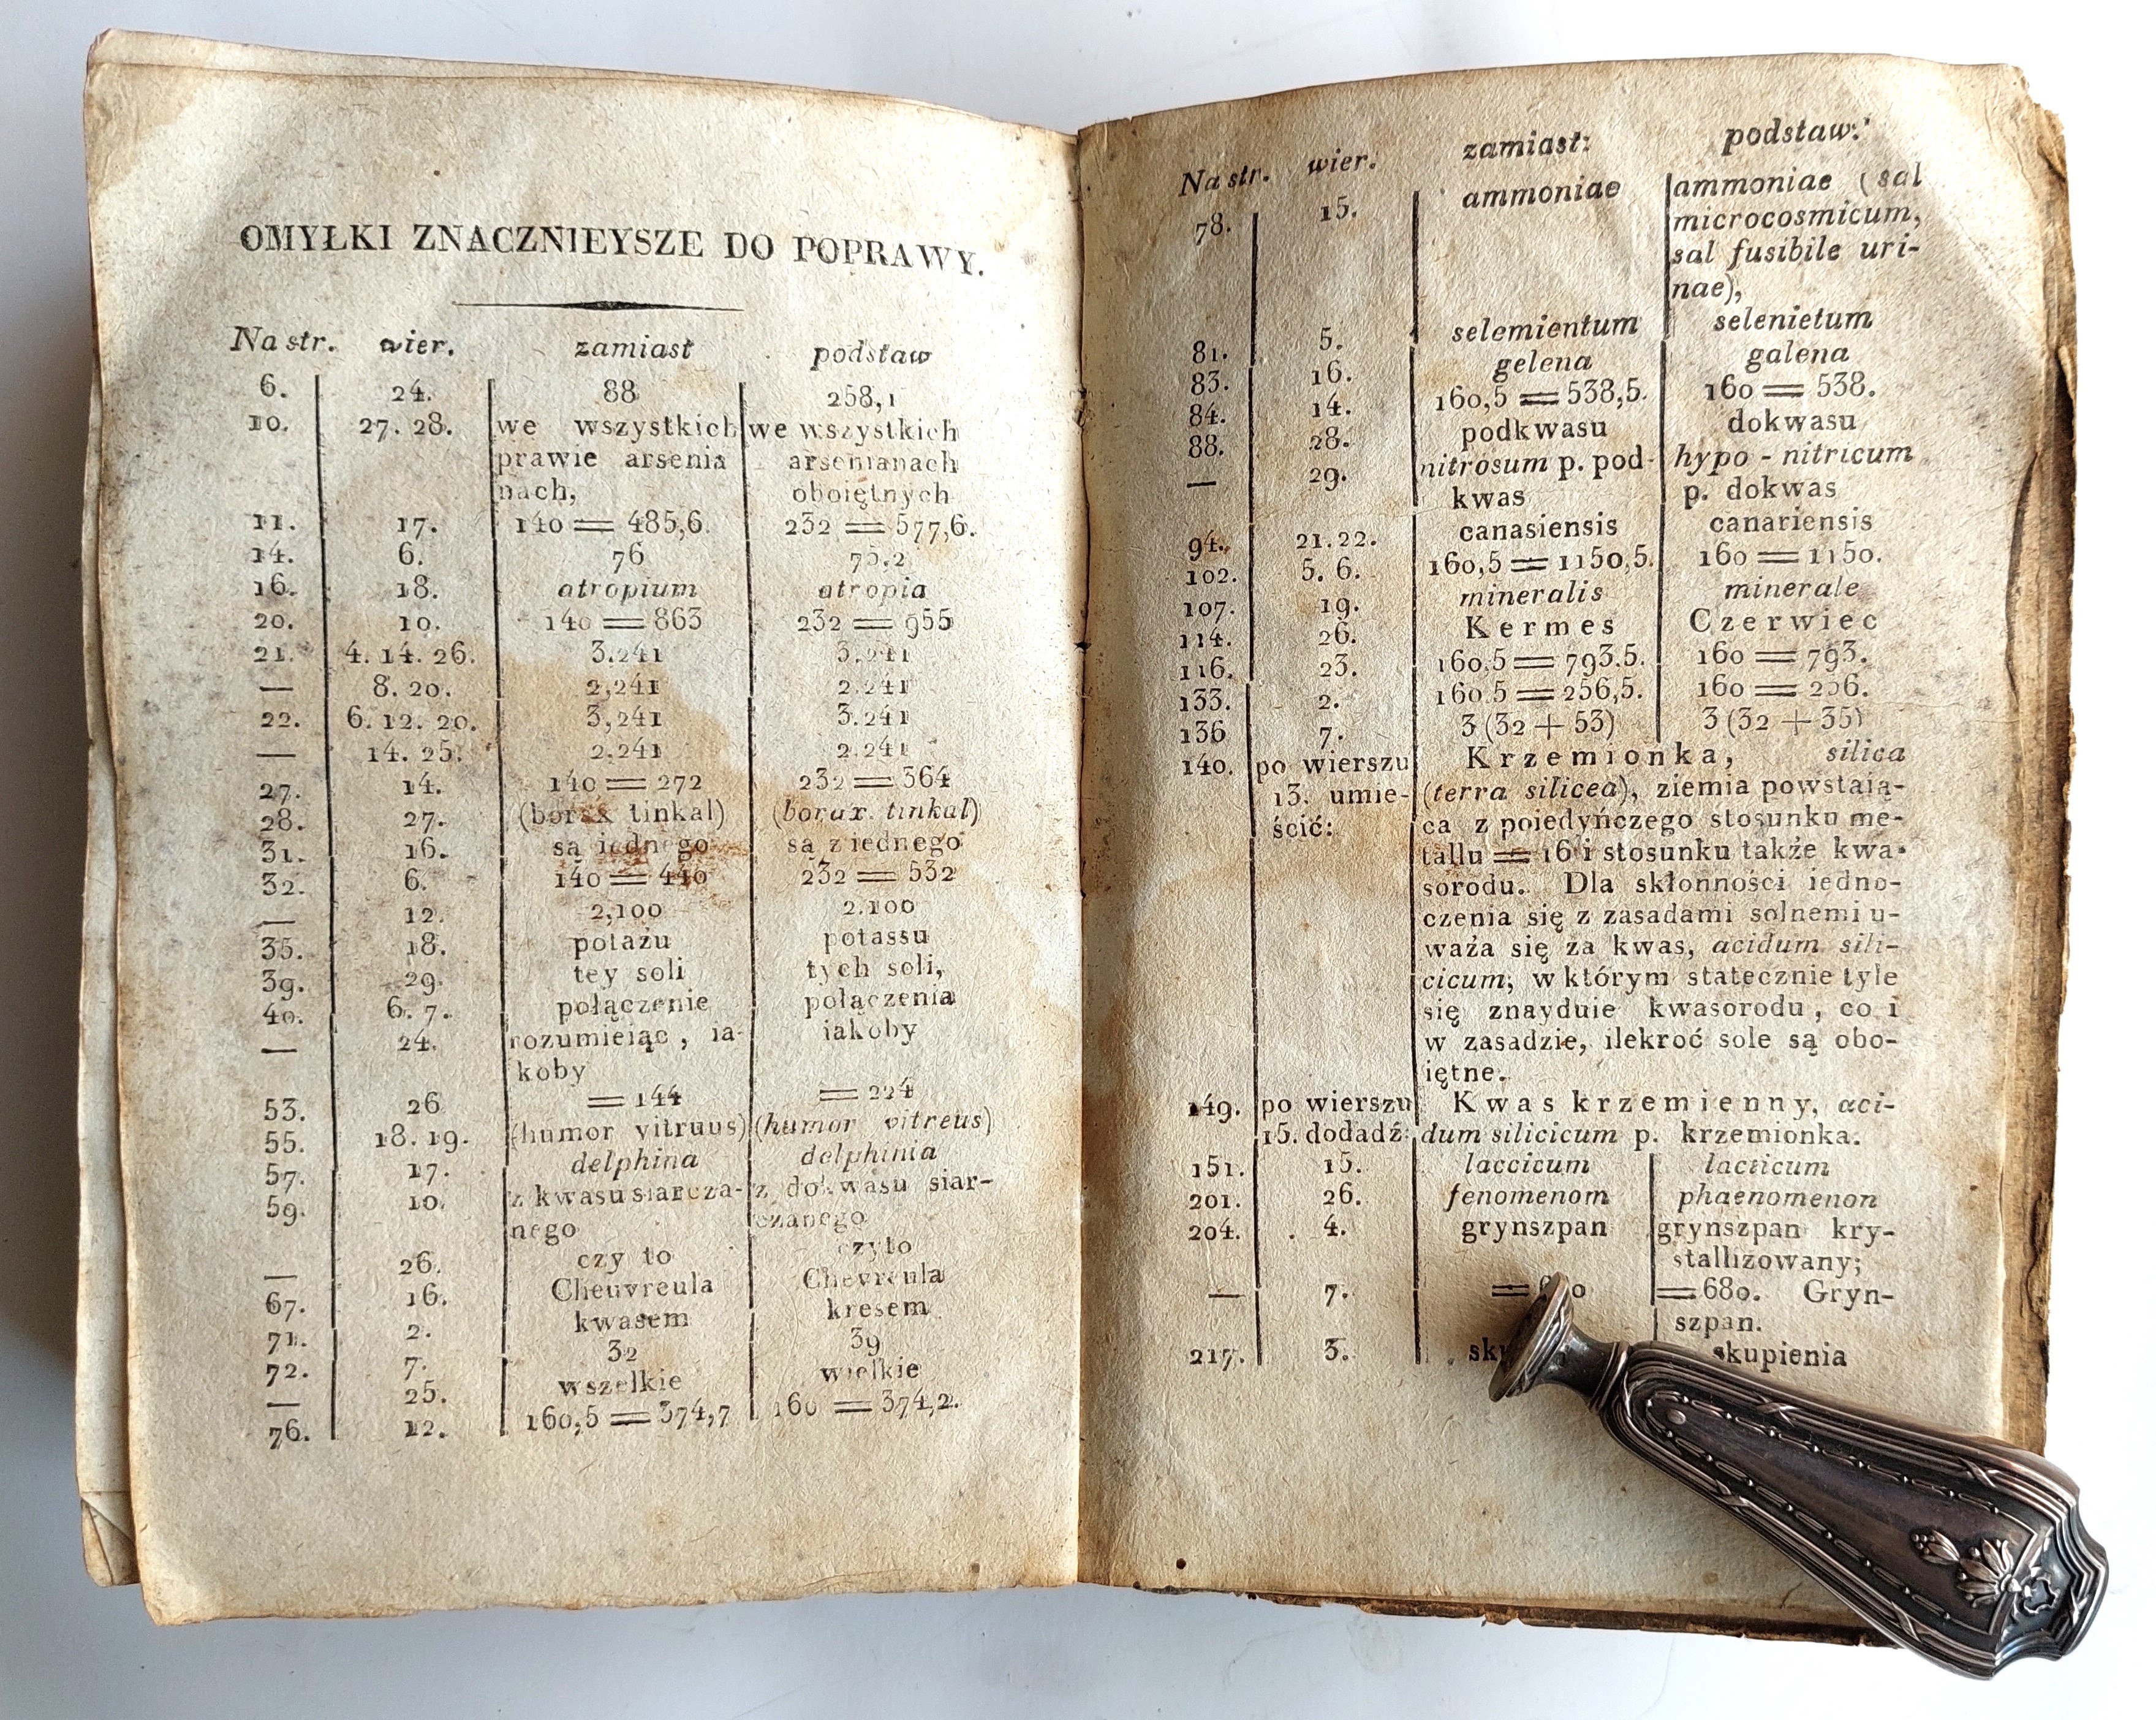 OMYŁKI ZNACZNIEYSZE DO POPRAWY.
Na str. wier. zamiast podstaw
6. 24. 88 258,1
10. 27. 28. we wszystkich we wszystkich
prawie arsenia arsenianach
nach, oboiętnych
11. 17. 140 = 485,6. 232 = 577,6.
14. 6. 76 75.2
16. 18. atropium atropia
20. 10. 140 = 863 232 = 955
21. 4. 14. 26. 3.241 3.241
— 8. 20. 2,241 2.241
22. 6. 12. 20. 3,241 3.241
— 14. 25. 2.241 2.241
27. 14. 140 = 272 232 = 364
28. 27. (borax tinkal) (borax tinkal)
31. 16. są iednego są z iednego
32. 6. 140 = 440 232 = 532
— 12. 2,100 2.100
35. 18. potażu potassu
39. 29. tey soli tych soli,
40. 6. 7. połączenie połączenia
— 24. rozumieiąc, ia- iakoby
koby
53. 26 = 144 = 224
55. 18. 19. (humor vitruus) (humor vitreus)
57. 17. delphina delphinia
59. 10. z kwasu siarcza- z dokwasu siar-
nego czanego
— 26. czy to czyto
67. 16. Cheuvreula Chevreula
71. 2. kwasem kresem
72. 7. 32 39
— 25. wszelkie wielkie
76. 12. 160,5 = 374,7 160 = 374,2.
Na str. wier. zamiast: podstaw:
78. 15. ammoniae ammoniae (sal
microcosmicum,
sal fusibile uri-
nae),
81. 5. selemientum selenietum
83. 16. gelena galena
84. 14. 160,5 = 538,5. 160 = 538.
88. 28. podkwasu dokwasu
— 29. nitrosum p. pod- hypo-nitricum
kwas p. dokwas
94. 21. 22. canasiensis canariensis
102. 5. 6. 160,5 = 1150,5. 160 = 1150.
107. 19. mineralis minerale
114. 26. Kermes Czerwiec
116. 23. 160,5 = 793.5. 160 = 793.
133. 2. 160 5 = 256,5. 160 = 256.
136 7. 3 (32 + 53) 3 (32 + 35)
140. po wierszu Krzemionka, silica
13. umie- (terra silicea), ziemia powstaią-
ścić: ca z poiedyńczego stosunku me-
tallu = 16 i stosunku także kwa-
sorodu. Dla skłonności iedno-
czenia się z zasadami solnemi u-
waża się za kwas, acidum sili-
cicum, w którym statecznie tyle
się znayduie kwasorodu, co i
w zasadzie, ilekroć sole są obo-
iętne.
149. po wierszu Kwas krzemienny, aci-
15. dodadź: dum silicicum p. krzemionka.
151. 15. laccicum lacticum
201. 26. fenomenom phaenomenon
204. 4. grynszpan grynszpan kry-
stallizowany;
— 7. = = 680. Gryn-
szpan.
217. 3. skupienia